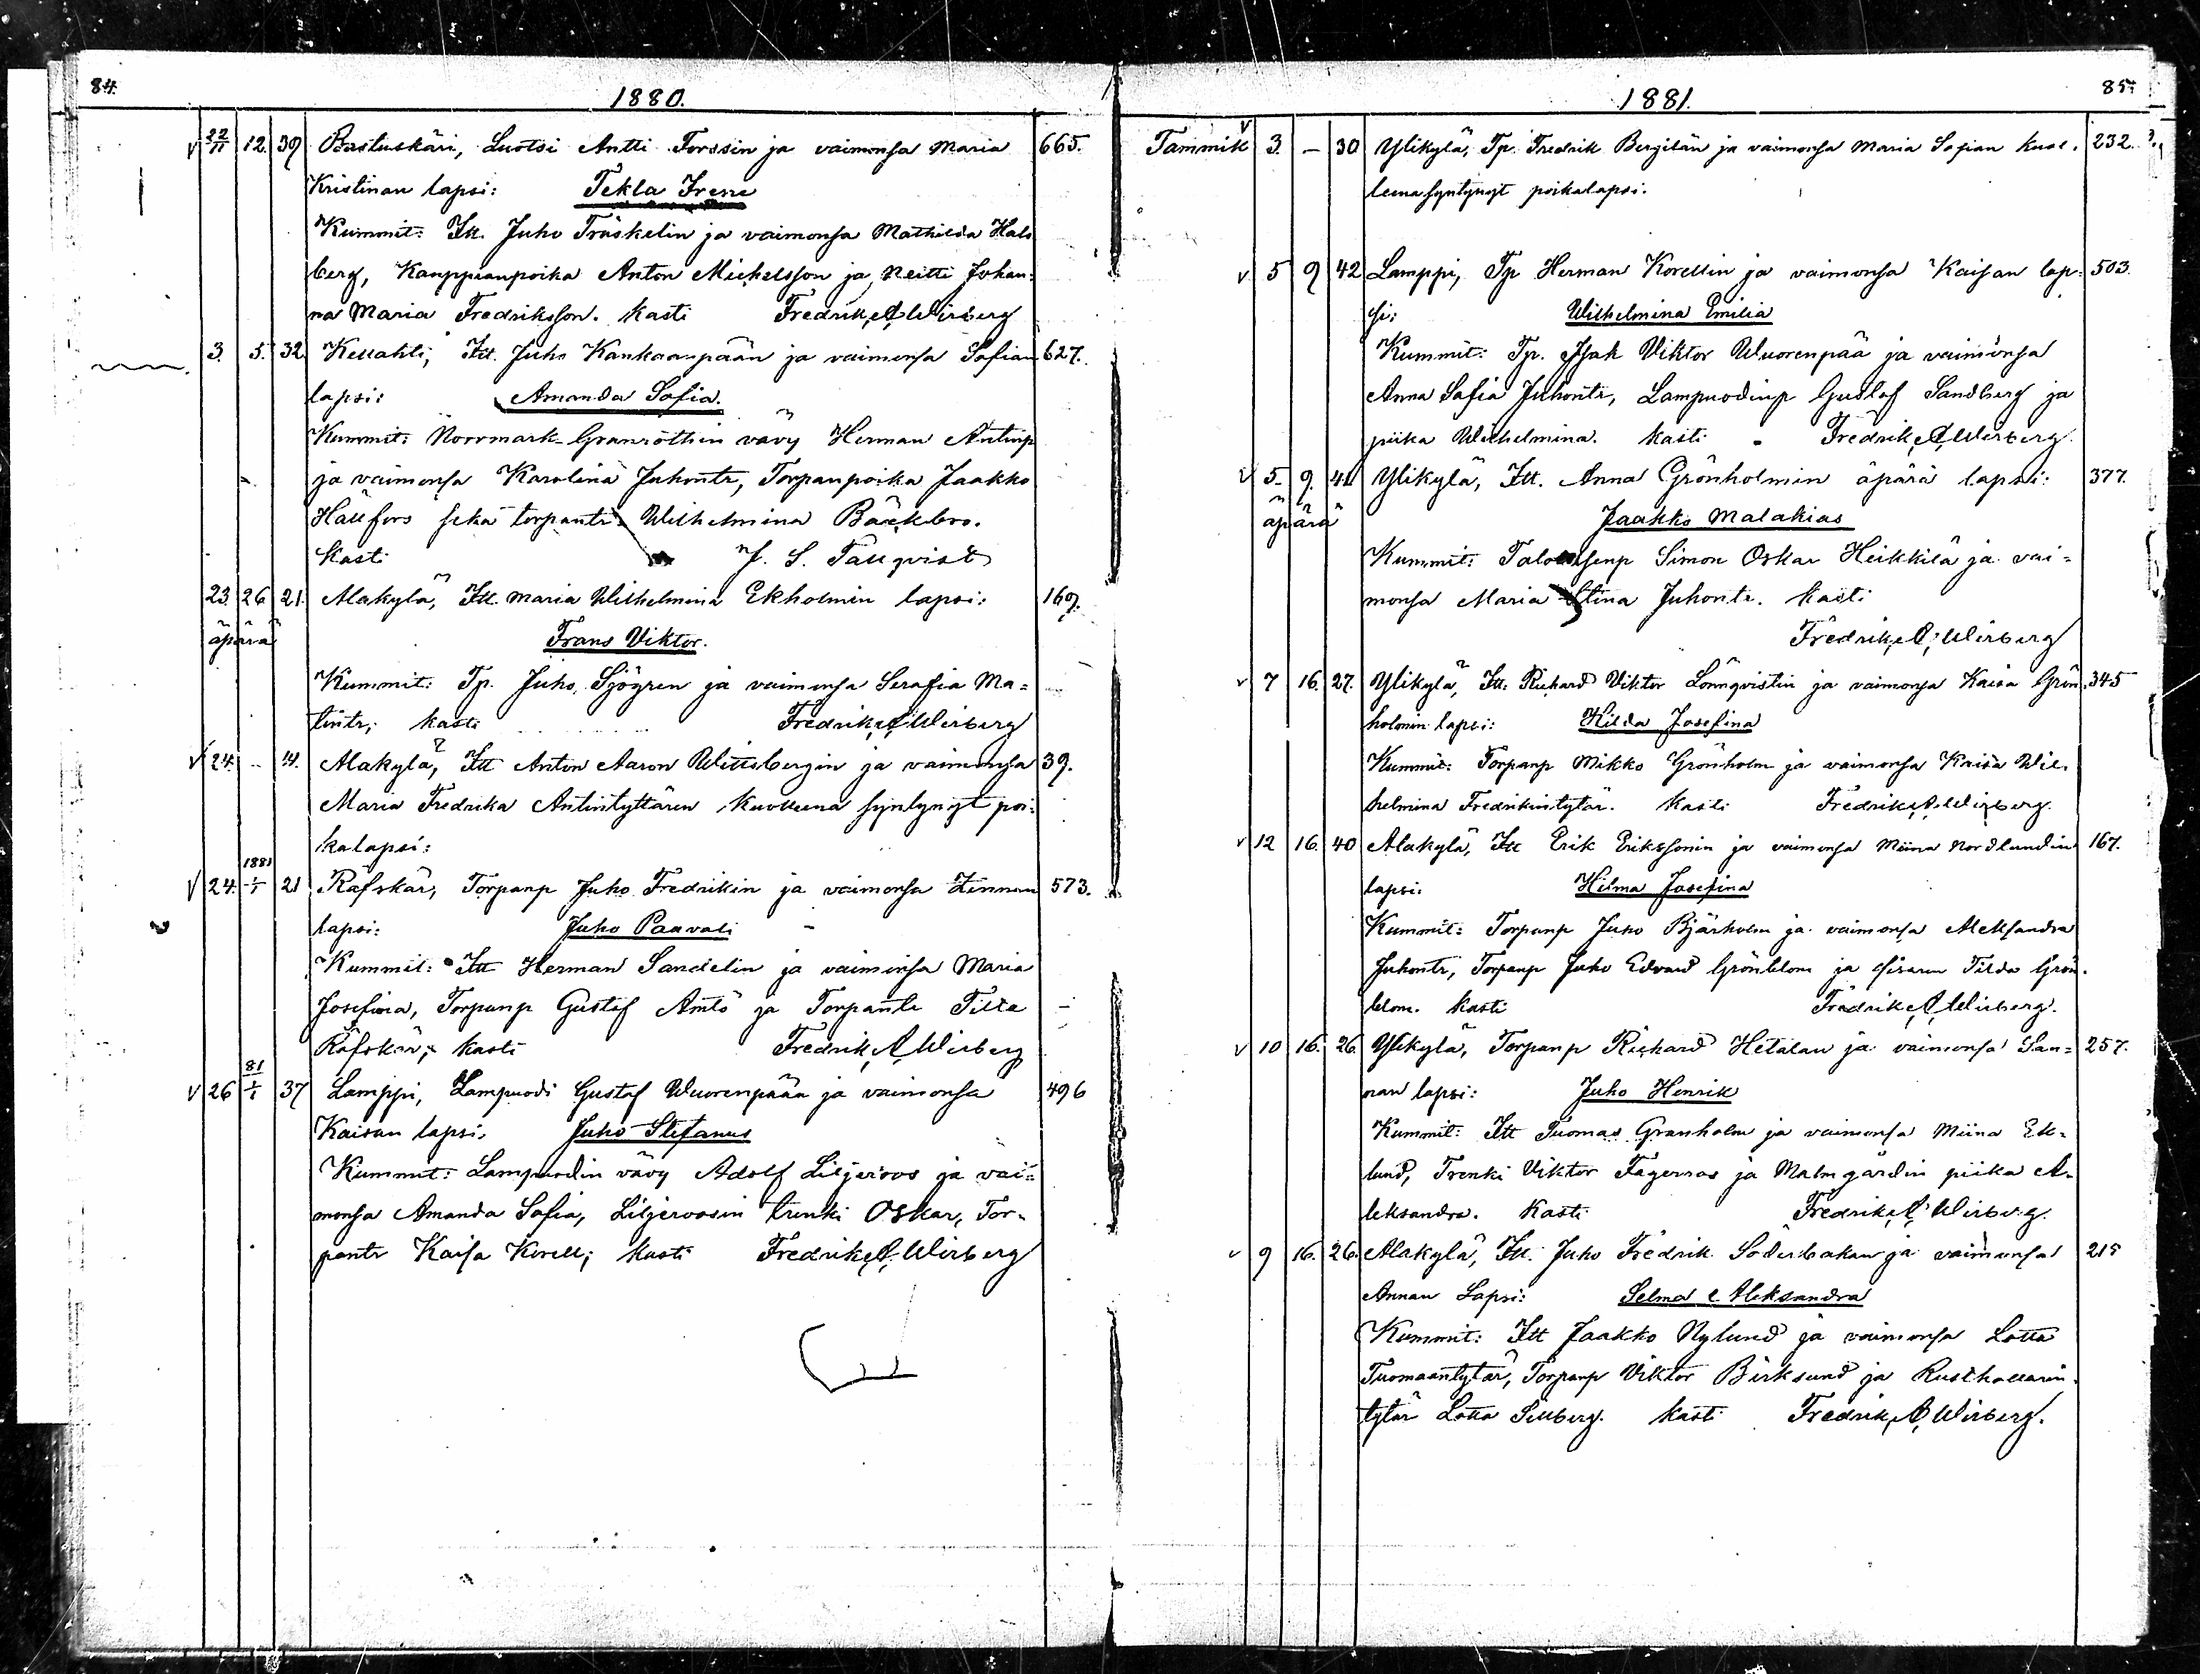 84.
1880.
22/11 12. 39 Bastuskäri, Luotsi Antti Forssin ja vaimonsa Maria 665.
Kristinan lapsi: Tekla Irene
Kummit: Itt. Juho Träskelin ja vaimonsa Mathilda Hals
berg, Kauppianpoika Anton Michelsson ja Neitti Johan-
na Maria Fredriksson. Kasti Fredrik A Wirberg
3. 5. 32 Kellahti, Itt. Juho Kankaanpään ja vaimonsa Sofian 627.
lapsi: Amanda Sofia.
Kummit: Norrmark Granrothin vävy Herman Antinp
ja vaimonsa Karolina Juhontr, Torpanpoika Jaakko
Hällfors sekä torpantr Wilhelmina Bäckbro.
Kasti J. S. Tallqvist
23. 26 21. Alakylä, Itt. Maria Wilhelmina Ekholmin lapsi: 169.
äpärä Frans Viktor.
Kummit: Tp. Juho Sjögren ja vaimonsa Serafia Ma=
tintr; kasti Fredrik A Wirberg
24. - Alakylä, Itt Anton Aaron Wittsbergin ja vaimonsa 39.
Maria Fredrika Antintyttären kuolleena syntynyt poi-
kalapsi:
1881
24. 1/1 21 Räfskär, Torpanp Juho Fredrikin ja vaimonsa Linnan 573.
lapsi: Juho Paavali
Kummit: Itt Herman Sandelin ja vaimonsa Maria
Josefina, Torpanp Gustaf Amtö ja Torpantr Tilta
Räfskär; kasti Fredrik A Wirberg
81
26 1/1 37 Lamppi, Lampuodi Gustaf Wuorenpään ja vaimonsa 496
Kaisan lapsi, Juho Stefanus
Kummit: Lampuodin vävy Adolf Liljeroos ja vai=
monsa Amanda Sofia, Liljeroosin trenki Oskar, Tor-
pantr Kaisa Korell; kasti Fredrik A. Wirberg
85.
1881.
Tammik 3. - 30 Ylikylä, Tp. Fredrik Bergilän ja vaimonsa Maria Sofian kuol. 232.
leena syntynyt poikalapsi.
5 9 42 Lamppi, Tp Herman Korellin ja vaimonsa Kaisan lap- 503.
si: Wilhelmina Emilia
Kummit: Tp. Isak Viktor Wuorenpää ja vaimonsa
Anna Sofia Juhontr, Lampuodinp Gustaf Sandberg ja
piika Wilhelmina. Kasti Fredrik A Wirberg.
5. 9. 41 Ylikylä, Itt. Anna Grönholmin äpärä lapsi: 377.
äpärä Jaakko Malakias
Kummit: Simon Oskar Heikkilä ja vai=
monsa Maria Stina Juhontr. Kasti
Fredrik A. Wirberg
7 16. 27. Ylikylä, Itt. Richard Viktor Lönnqvistin ja vaimonsa Kaisa Grön 345
holmin lapsi: Hilda Josefina
Kummit: Torpanp Mikko Grönholm ja vaimonsa Kaisa Wil.
helmina Fredrikintytär. Kasti Fredrik A. Wirberg.
12 16. 40 Alakylä, Itt Erik Erikssonin ja vaimonsa Miina Nordlundin 167.
lapsi. Hilma Josefina
Kummit: Torpanp Juho Bjärholm ja vaimonsa Aleksandra
Juhontr, Torpanp Juho Edvard Grönblom ja sisaren Tilda Grön-
blom. Kasti Fredrik A Wirberg.
10 16. 26. Ylikylä, Torpanp Richard Hetalan ja vaimonsa San= 257.
nan lapsi: Juho Henrik
Kummit: Itt Tuomas Granholm ja vaimonsa Miina Ek=
lund, Trenki Viktor Fagerroos ja Malmgårdin piika A-
leksandra. Kasti Fredrik A Wirberg.
9 16. 26. Alakylä, Itt. Juho Fredrik Söderbackan ja vaimonsa 215
Annan Lapsi: Selma Aleksandra
Kummit: Itt Jaakko Nylund ja vaimonsa Lotta
Tuomaantytär, Torpanp Viktor Birksund ja Rusthollarin
tytär Lotta Sillberg. Kasti Fredrik A Wirberg.